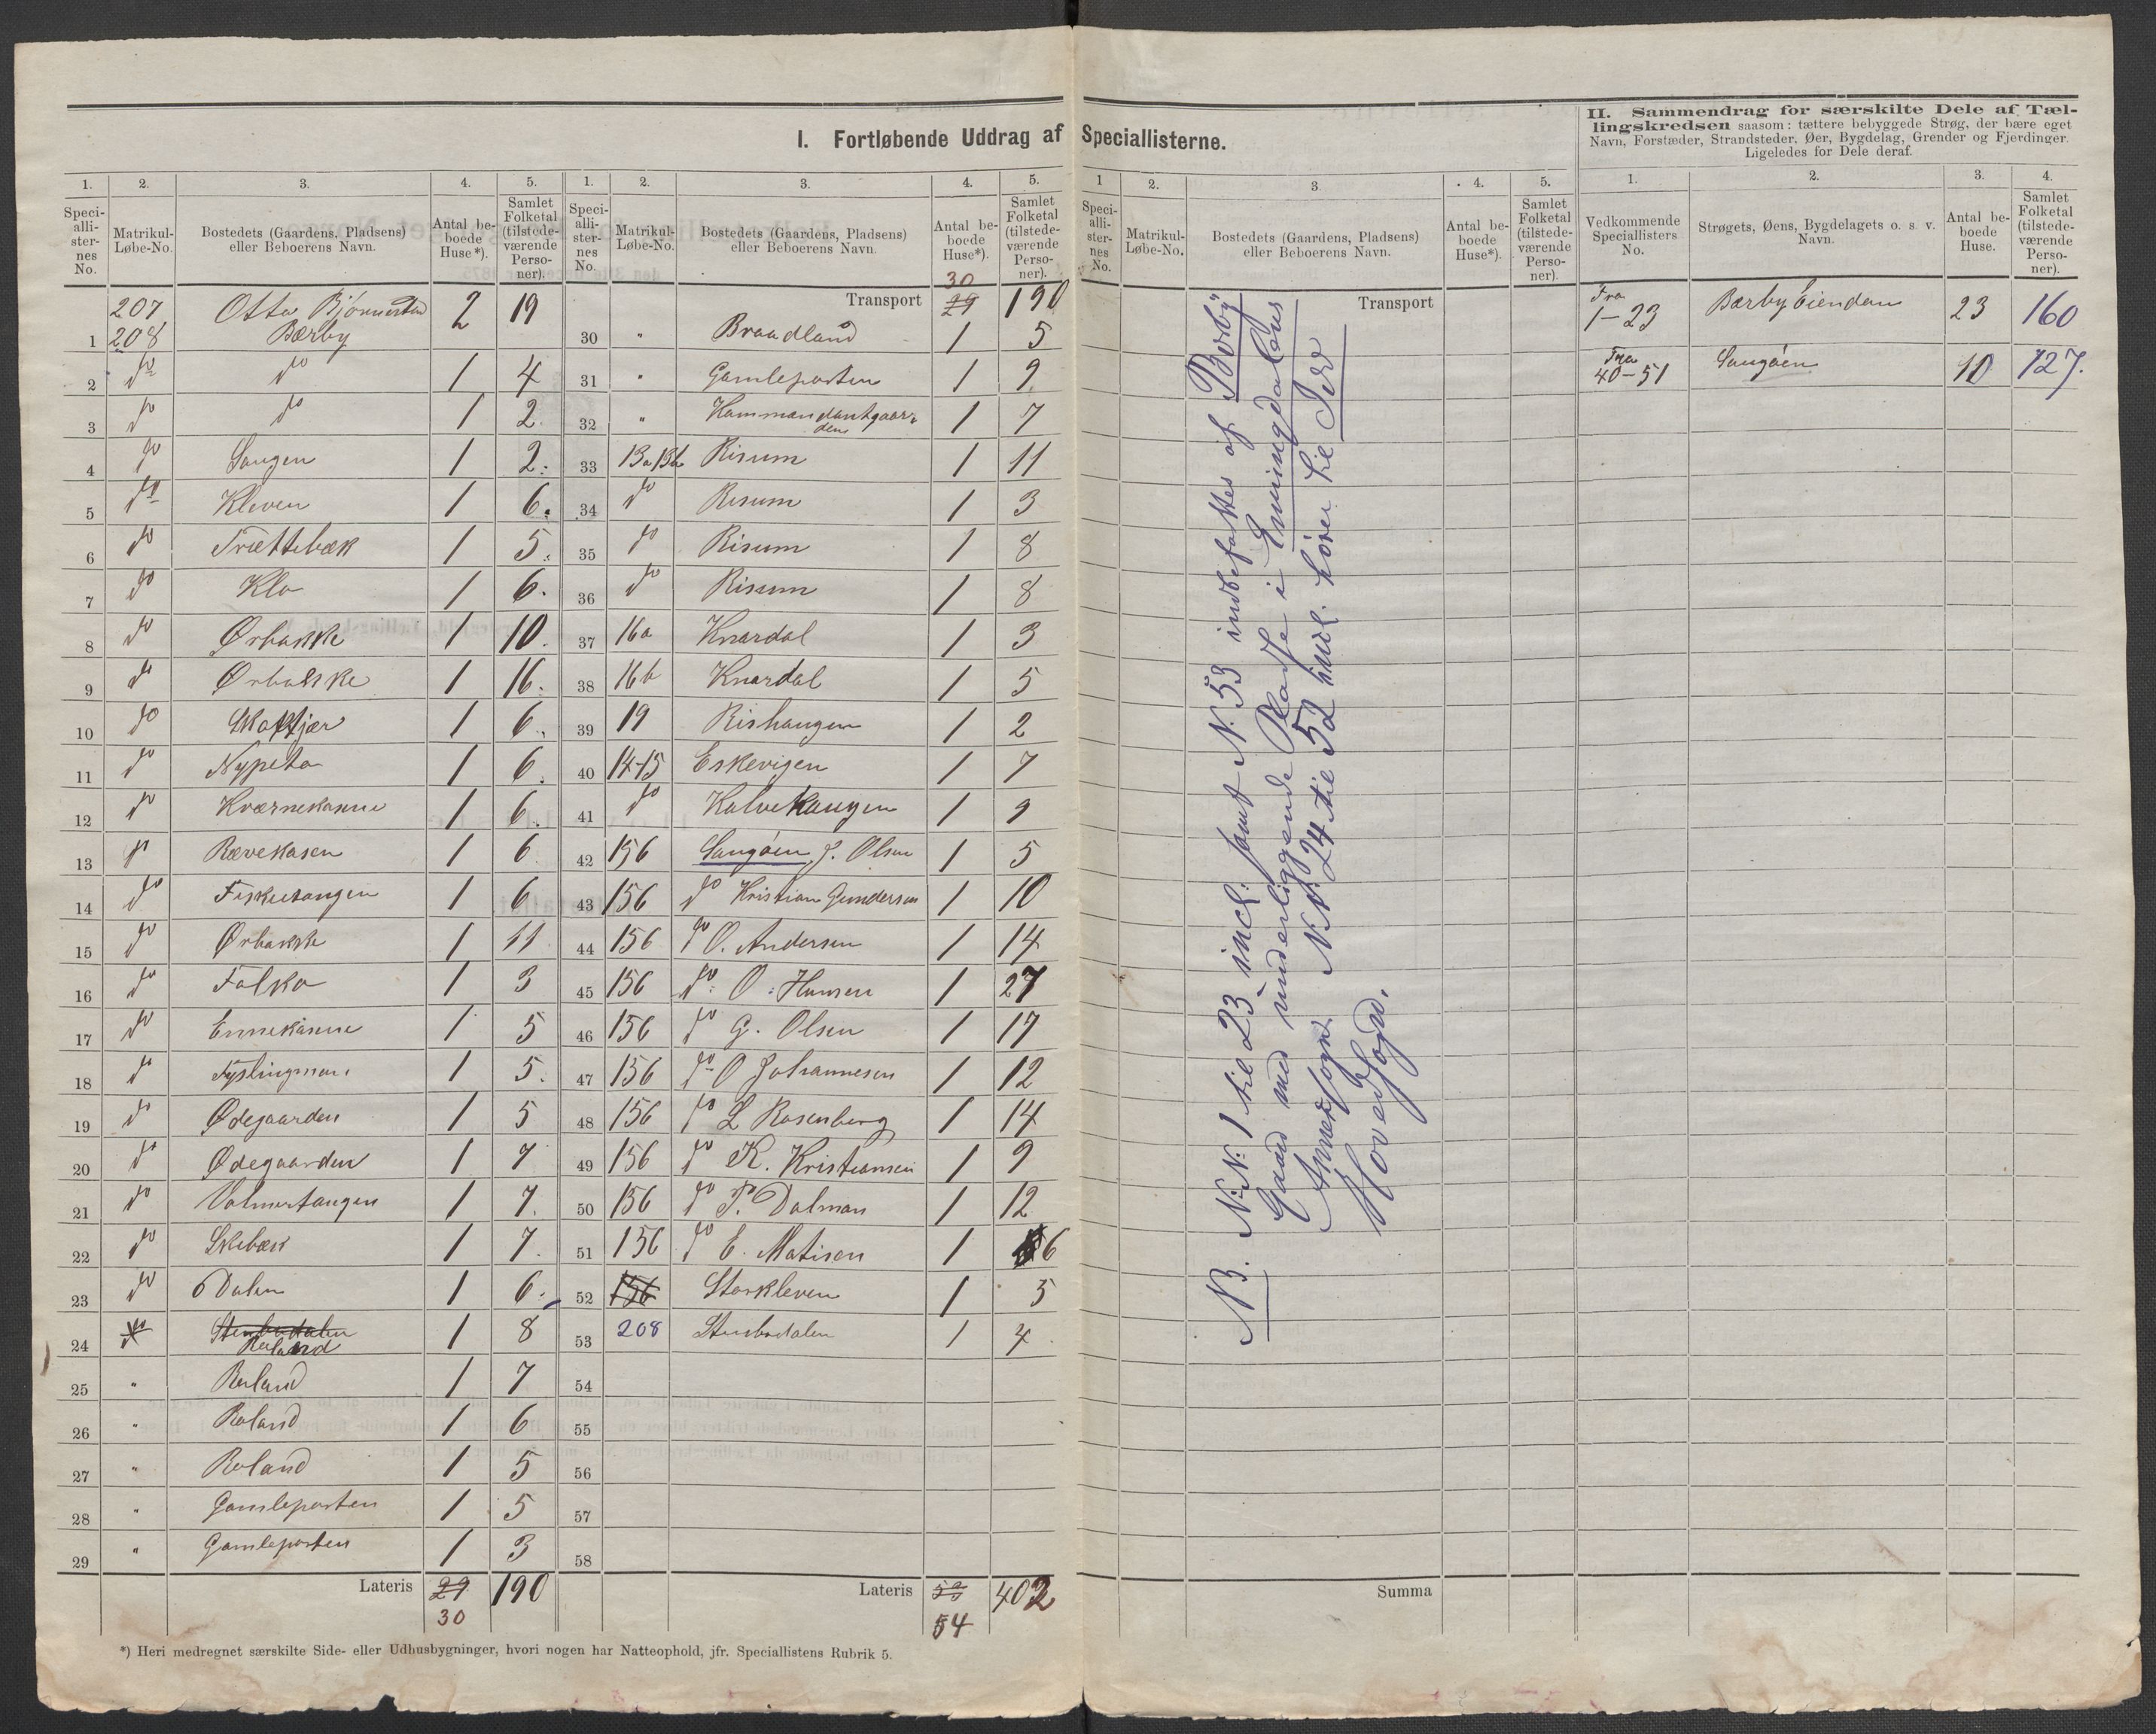 I. Fortløbende Uddrag af Speciallisterne.
II. Sammendrag for særskilte Dele af Tæl-
lingskredsen saasom: tættere bebyggede Strøg, der bære eget
Navn, Forstæder, Strandsteder, Øer, Bygdelag, Grender og Fjerdinger.
Ligeledes for Dele deraf.
1. 2. 3. 4. 5. 1. 2. 3. 4. 5.
Speci-alli-ster-nes No. Matrikul-Løbe-No. Bostedets (Gaardens, Pladsens) eller Beboerens Navn. Antal be-boede Huse*). Samlet Folketal (tilstede-værende Perso-ner). Speci-alli-ster-nes No. Matrikul-Løbe-No. Bostedets (Gaardens, Pladsens) eller Beboerens Navn. Antal be-boede Huse*). Samlet Folketal (tilstede-værende Perso-ner).
207 Otto Bjørnerstad 2 19
1 208 Bærby
2 do do 1 4
3 do do 1 2
4 do Saugen 1 2
5 do Kleven 1 6
6 do Trættebæk 1 5
7 do Klo 1 6
8 do Ørbække 1 10
9 do Ørbække 1 16
10 do 1 6
11 do Nypeto 1 6
12 do Kværnekasene 1 6
13 do Rævekasen 1 6
14 do Fisketangen 1 6
15 do Ørbække 1 11
16 do Falko 1 3
17 do Ennekasene 1 5
18 do 1 5
19 do Ødegaarden 1 5
20 do Ødegaarden 1 7
21 do Valmertangen 1 7
22 do Skebæk 1 7
23 do Dalen 1 6
24 do Stenbudalen Røland 1 8
25 " Røland 1 7
26 " Røland 1 6
27 " Røland 1 5
28 " Gamleporten 1 5
29 " Gamleporten 1 3
Lateris 29 190
30
Transport 30 29 190
30 " Braadland 1 5
31 " Gamleporten 1 9
32 " Kommandantgaarden 1 7
33 13a 13b Risum 1 11
34 do Risum 1 3
35 do Risum 1 8
36 do Risum 1 8
37 16a Knardal 1 3
38 16b Knardal 1 5
39 19 Rishaugen 1 2
40 14-15 Eskevigen 1 7
41 do Kalvehaugen 1 9
42 156 Saugøen J. Olsen 1 5
43 156 do Kristian Gundersen 1 10
44 156 do O. Andersen 1 14
45 156 do O. Hansen 1 27
46 156 do G. Olsen 1 17
47 156 do O Johannesen 1 12
48 156 do L Rosenberg 1 14
49 156 do K. Kristiansen 1 9
50 156 do P. Dalman 1 12
51 156 do E. Matisen 1 6
52 156 Storkleven 1 5
53 208 Stenbodalen 1 4
54
55
56
57
58
Lateris 53 402
54
*) Heri medregnet særskilte Side- eller Udhusbygninger, hvori nogen har Natteophold, jfr. Speciallistens Rubrik 5.
1 2. 3. 4. 5.
Speci-alli-ster-nes No. Matrikul-Løbe-No. Bostedets (Gaardens, Pladsens) eller Beboerens Navn. Antal be-boede Huse*). Samlet Folketal (tilstede-værende Perso-ner).
Transport
NB. N:N: 1 til 23 incl. samt N: 53 indbefattes af "Bærby"
Gaard med underliggende Pladse i Enningdalens
Annexsogn. N:N: 24 til 52 incl. hører til Idd
Hovedsogn.
Summa
1. 2. 3. 4.
Vedkommende Speciallisters No. Strøgets, Øens, Bygdelagets o. s. v. Navn. Antal be-boede Huse. Samlet Folketal (tilstede-værende Perso-ner).
Fra 1-23 Bærby Eiendom 23 160
Fra 40-51 Saugøen 10 127.